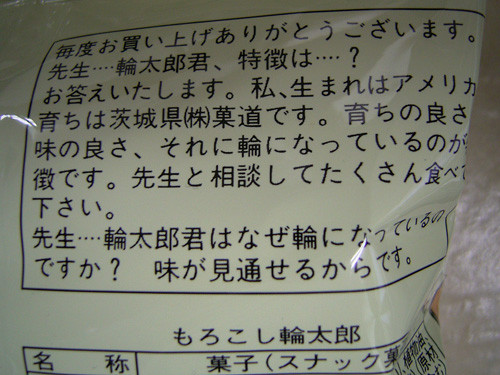 毎度お買い上げありがとうございます。
先生‥‥輪太郎君、特徴は‥‥?
お答えいたします。私、生まれはアメリカ
育ちは茨城県㈱菓道です。育ちの良さ
味の良さ、それに輪になっているのが
徴です。先生と相談してたくさん食べて
下さい。
先生‥‥輪太郎君はなぜ輪になっているの
ですか? 味が見通せるからです。
もろこし輪太郎
名 称 菓子(スナック菓
植物油
原材